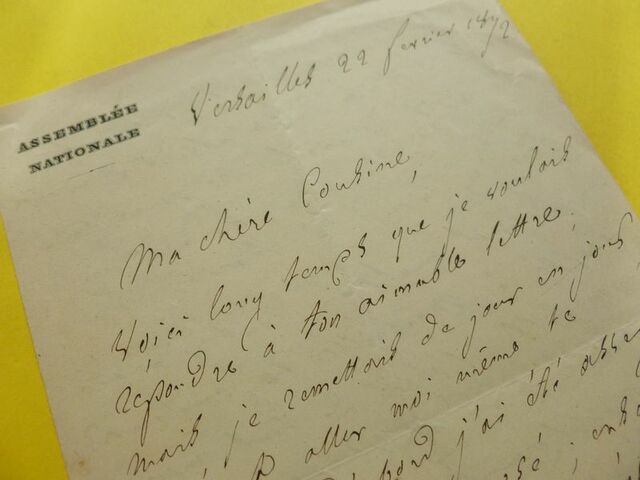 ASSEMBLÉE
NATIONALE
Versailles 22 février 1872
Ma chère Cousine,
Voici long temps que je voulais
répondre à ton aimable lettre,
mais je remettais de jour en jour,
aller moi même te
j'ai été assez